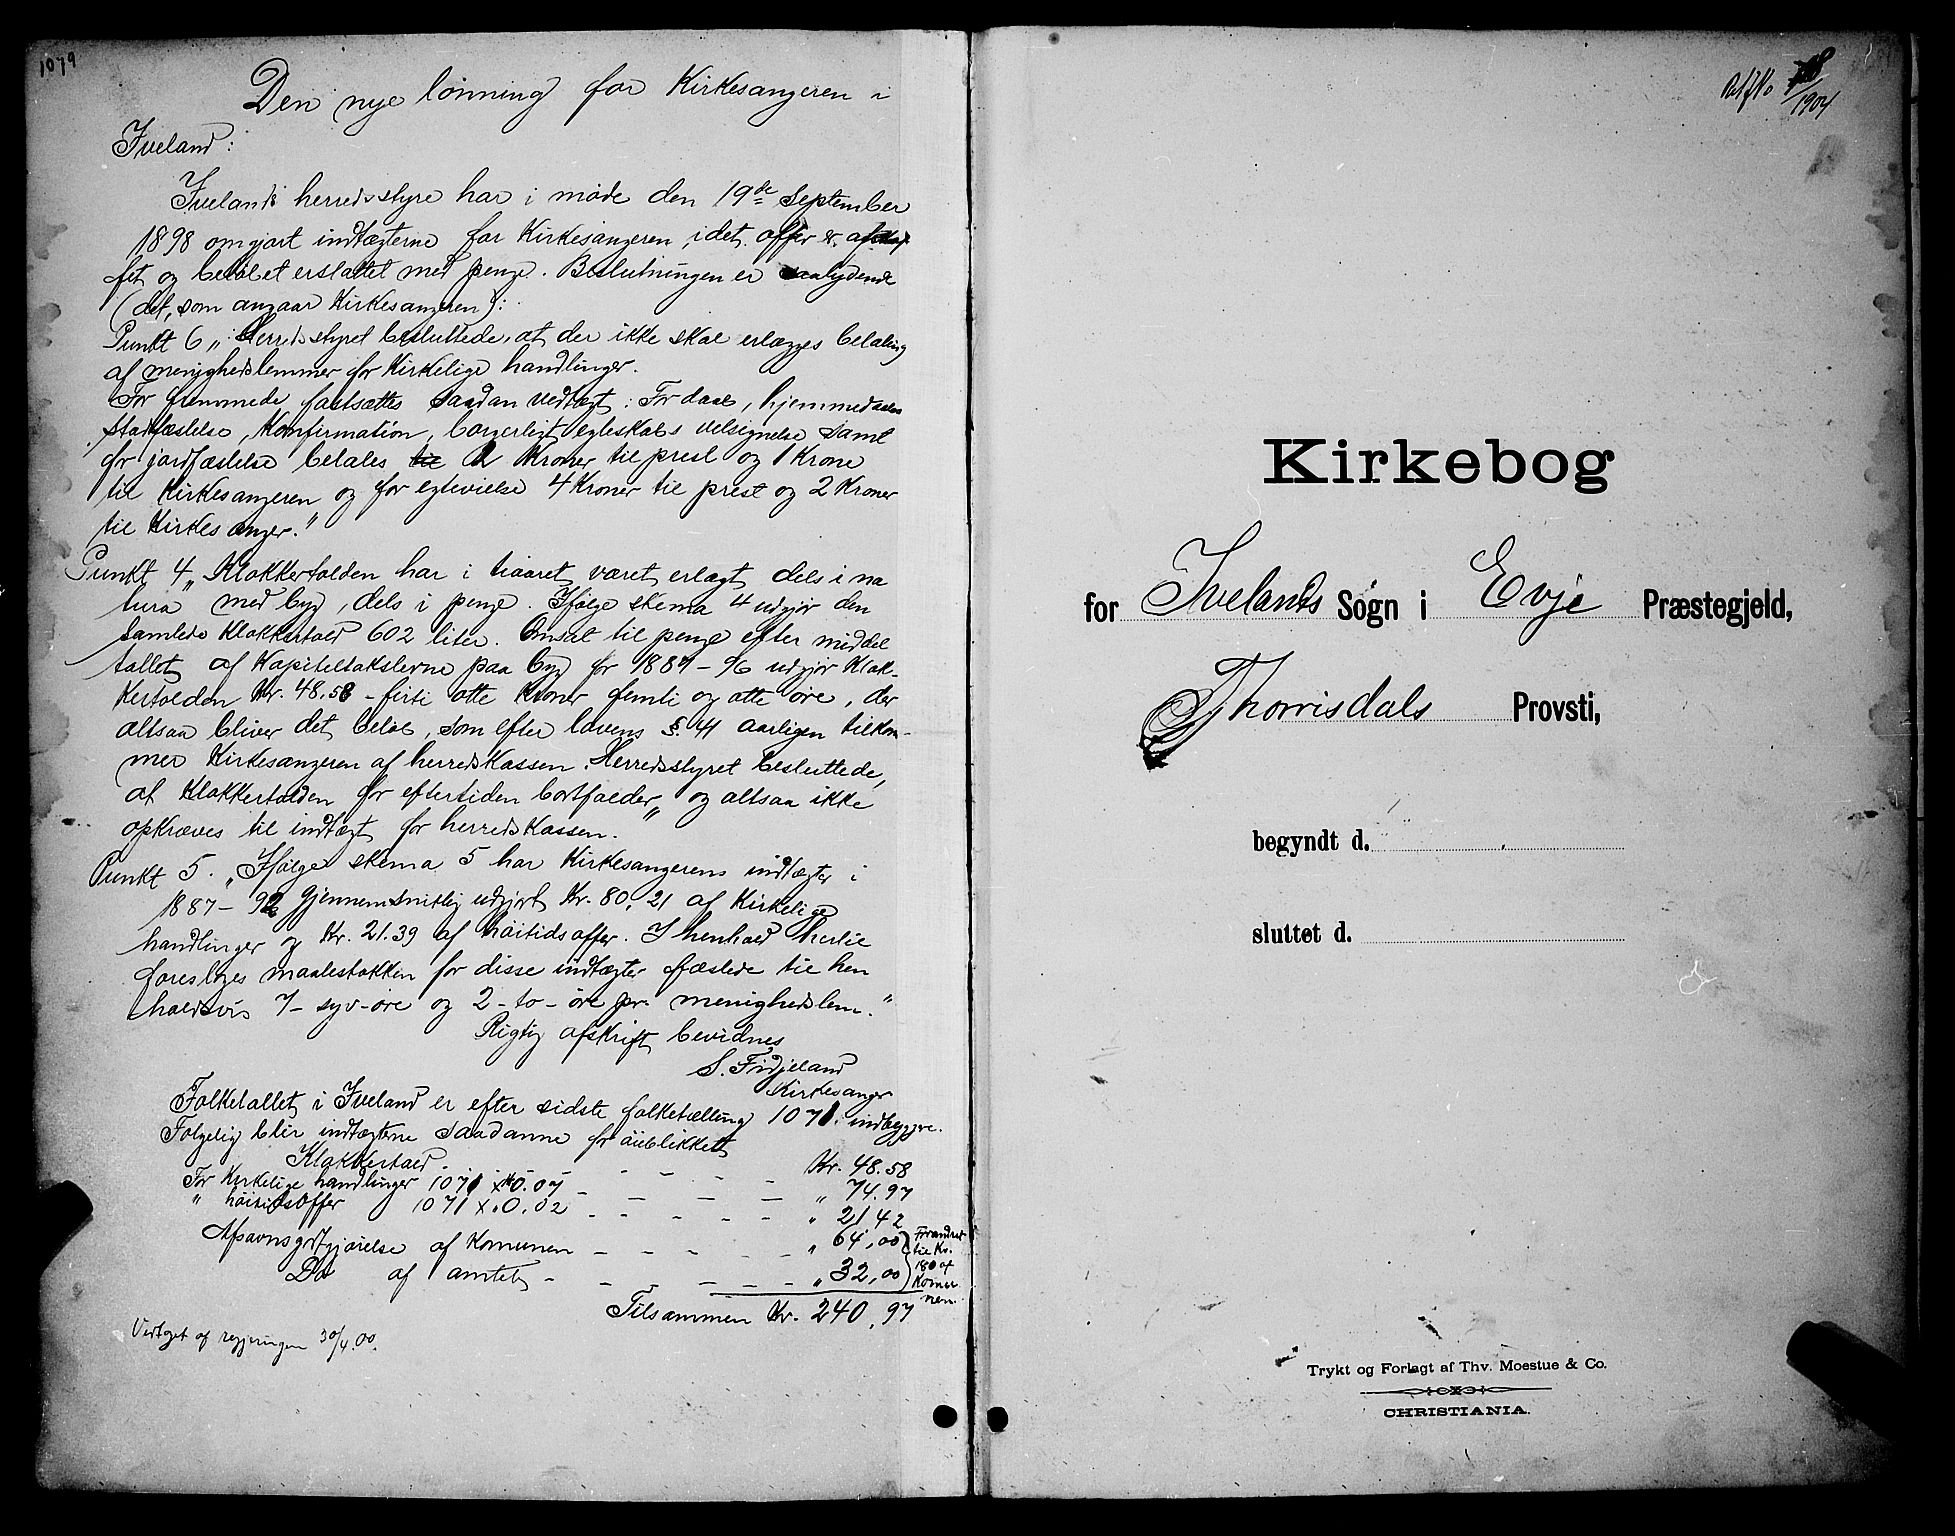 1079
Den nye lønning for Kirkesangeren i
Iveland:
Ivelands herredsstyre har i møde den 19de September
1898 omgjort indtægterne for Kirkesangeren, idet offer er afskaf
fet og beløbet erstattet med penge. Beslutningen er saalydende
(det, som angaar Kirkesangeren):
Punkt 6 „Herredsstyret besluttede, at der ikke skal erlægges betaling
af menighedslemmer for Kirkelige handlinger.
For fremmede fastsættes saadan vedtægt: For daab, hjemmedaabs
stadfæstelse, Konfirmation, borgerligt egteskabs velsignelse samt
for jordfæstelse betales til 2 Kroner til prest og 1 Krone
til Kirkesangeren og for egtevielse 4 Kroner til prest og 2 Kroner
til Kirkesanger."
Punkt 4 „Klokkertolden har i tiaaret været erlagt dels i na
tura med byg, dels i penge. Ifølge skema 4 udgjør den
samlede Klokkertold 602 liter. Omsat til penge efter middel
tallet af Kapiteltaksterne paa byg for 1887-96 udgjør Klok-
kertolden Kr. 48.58 - førti otte Kroner femti og otte øre, der
altsaa bliver det beløb, som efter lovens §. 41 aarligen tilkom-
mer Kirkesangeren af herredskassen. Herredsstyret besluttede,
at Klokkertolden for eftertiden bortfalder" og altsaa ikke
opkræves til indtægt for herredskassen.
Punkt 5. „Ifølge skema 5 har Kirkesangerens indtægter i
1887-96 gjennemsnitlig udgjort Kr. 80,21 af Kirkelige
handlinger og Kr. 21.39 af høitidsoffer. I henhold hertil
foresloges maalestokken for disse indtægter fæstede til hen
holdsvis 7-syv-øre og 2-to-øre pr. menighedslem."
Rigtig afskrift bevidnes
S. Fidjeland
Kirkesanger
Folketallet i Iveland er efter sidste folketælling 1071 indbyggere.
Følgelig blir indtægterne saadanne for øieblikket
Klokkertold - - - Kr. 48.58
For Kirkelige handlinger 1071 x 0.07 - - - „ 74.97
„ høitidsoffer 1071 x 0.02 - - - - - „ 21 42
Afsavnsgodtgjørelse af Komunen - - - - „ 64,00
Do af amtet - - - - - - „ 32,00
Forandret
til Kr.
180 af
Komu
nen.
Tilsammen Kr. 240,97
Vedtaget af regjeringen 30/4.00.
1904
Kirkebog
for Ivelands Sogn i Evje Præstegjeld,
Thorrisdals Provsti,
begyndt d.
sluttet d.
Trykt og Forlagt af Thv. Moestue & Co.
CHRISTIANIA.